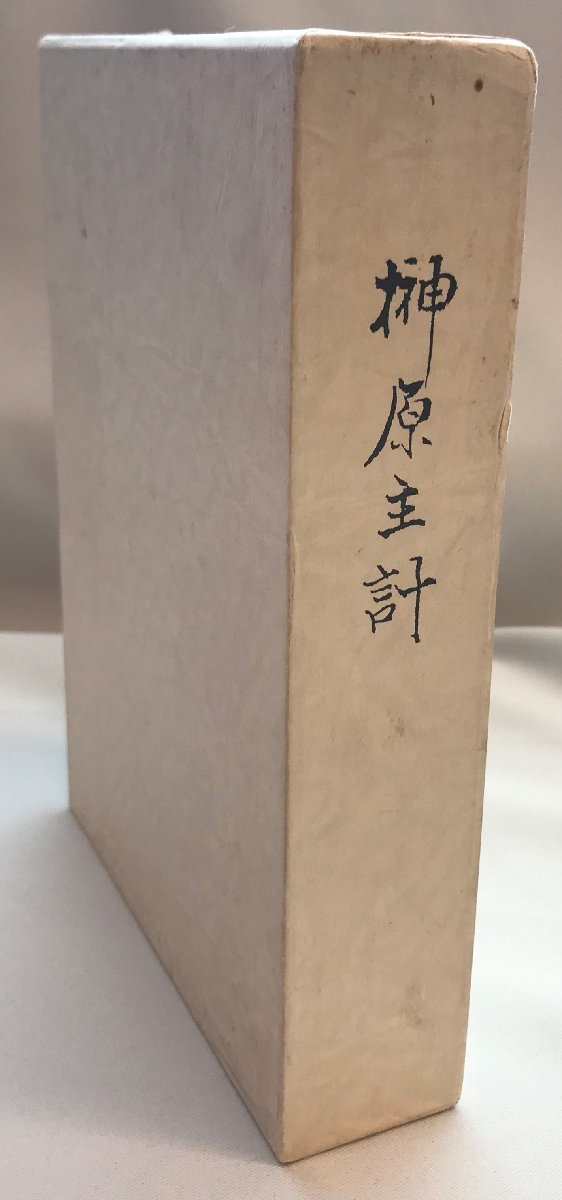 榊原主計